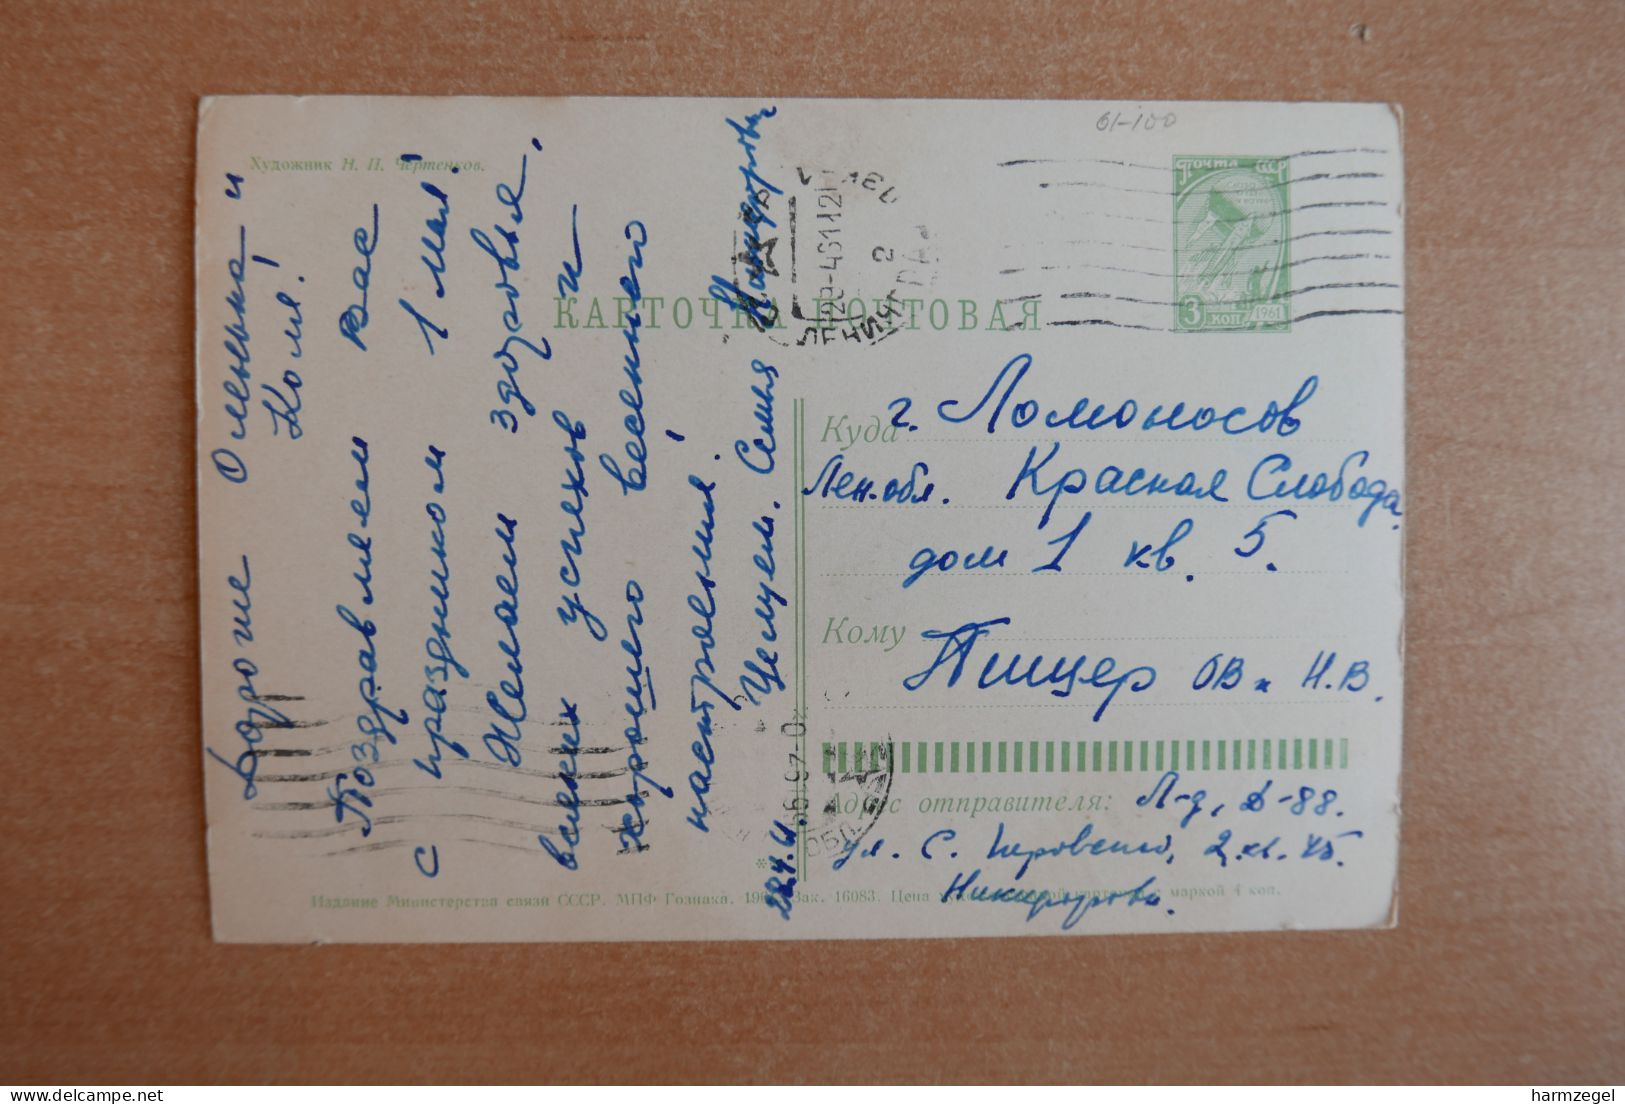 Художник Н. П. Чертенков.
Дорогие Оленька и
Коля!
Поздравляем Вас
с праздником 1 мая!
Желаем здоровья,
всяких успехов и
хорошего весеннего
настроения!
Целуем. Семья
22.4.61.
61-100
ПОЧТА СССР
3 КОП 1961
КАРТОЧКА ПОЧТОВАЯ
Куда г. Ломоносов
Лен.обл. Красная Слобода
дом 1 кв. 5.
Кому
Пищер ОВ и Н.В.
Адрес отправителя: Л-д, Д-88.
ул. С. Перовской, 2 кв. 45.
Издание Министерства связи СССР. МПФ Гознака. Зак. 16083. Цена с маркой 4 коп.
harmzegel